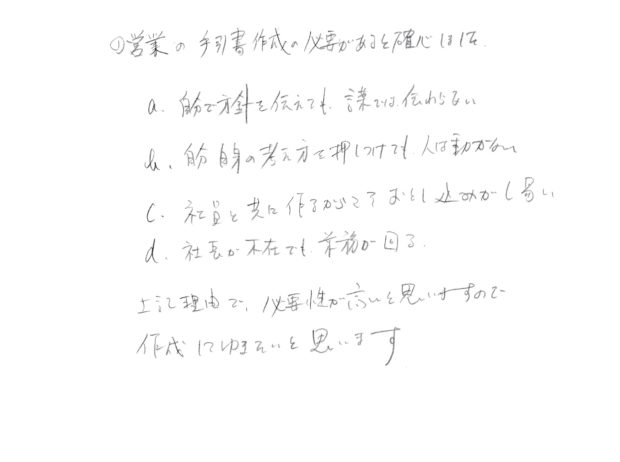 ①営業の手引書作成の必要があると確心しました.
a. 自分で方針を伝えても、言葉では伝わらない
b. 自分自身の考え方で押しつけても、人は動かない
c. 社員と共に作るからこそおとし込みがし易い
d. 社長が不在でも、業務が回る.
上記理由で、必要性が高いと思いますので
作成してゆきたいと思います